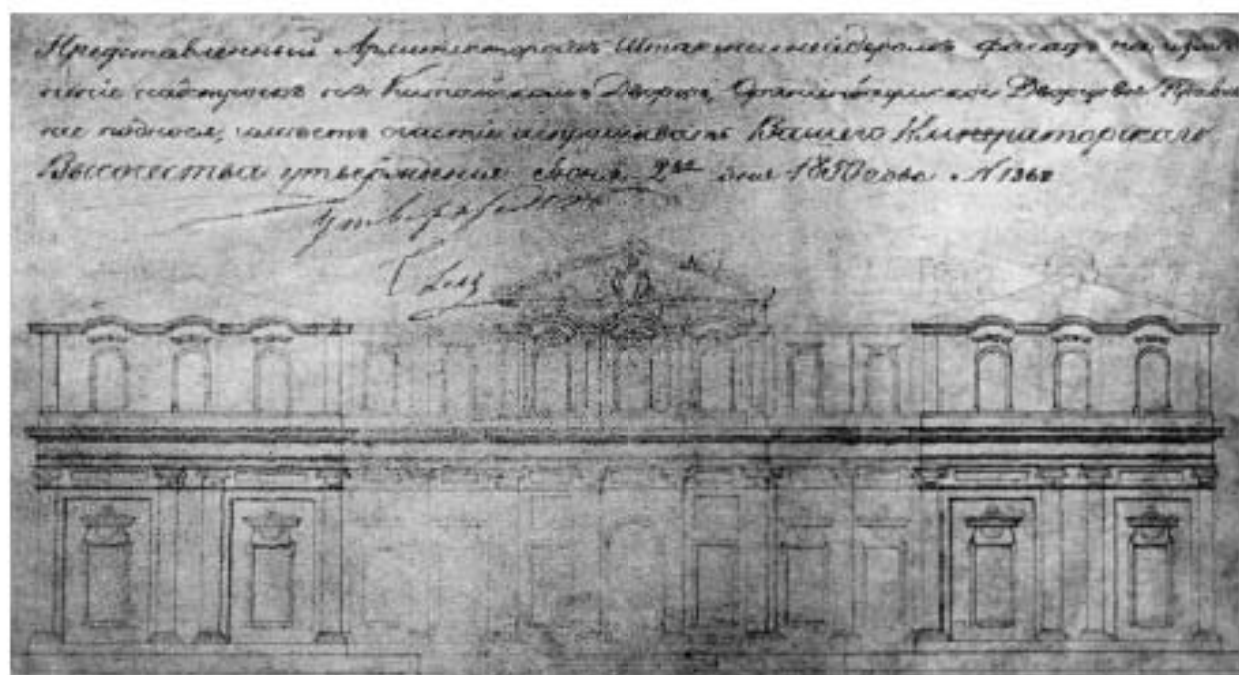 Представленный Архитекторомъ Штакеншнейдеромъ фасадъ на
надстроекъ на Китайскомъ Дворцѣ, Ораніенбаумское Дворцовое Правле
ніе поднося, имѣетъ счастіе испрашивать Вашего Императорскаго
Высочества утвержденія Іюня 2го дня 1850 года № 1362
Утверждаю